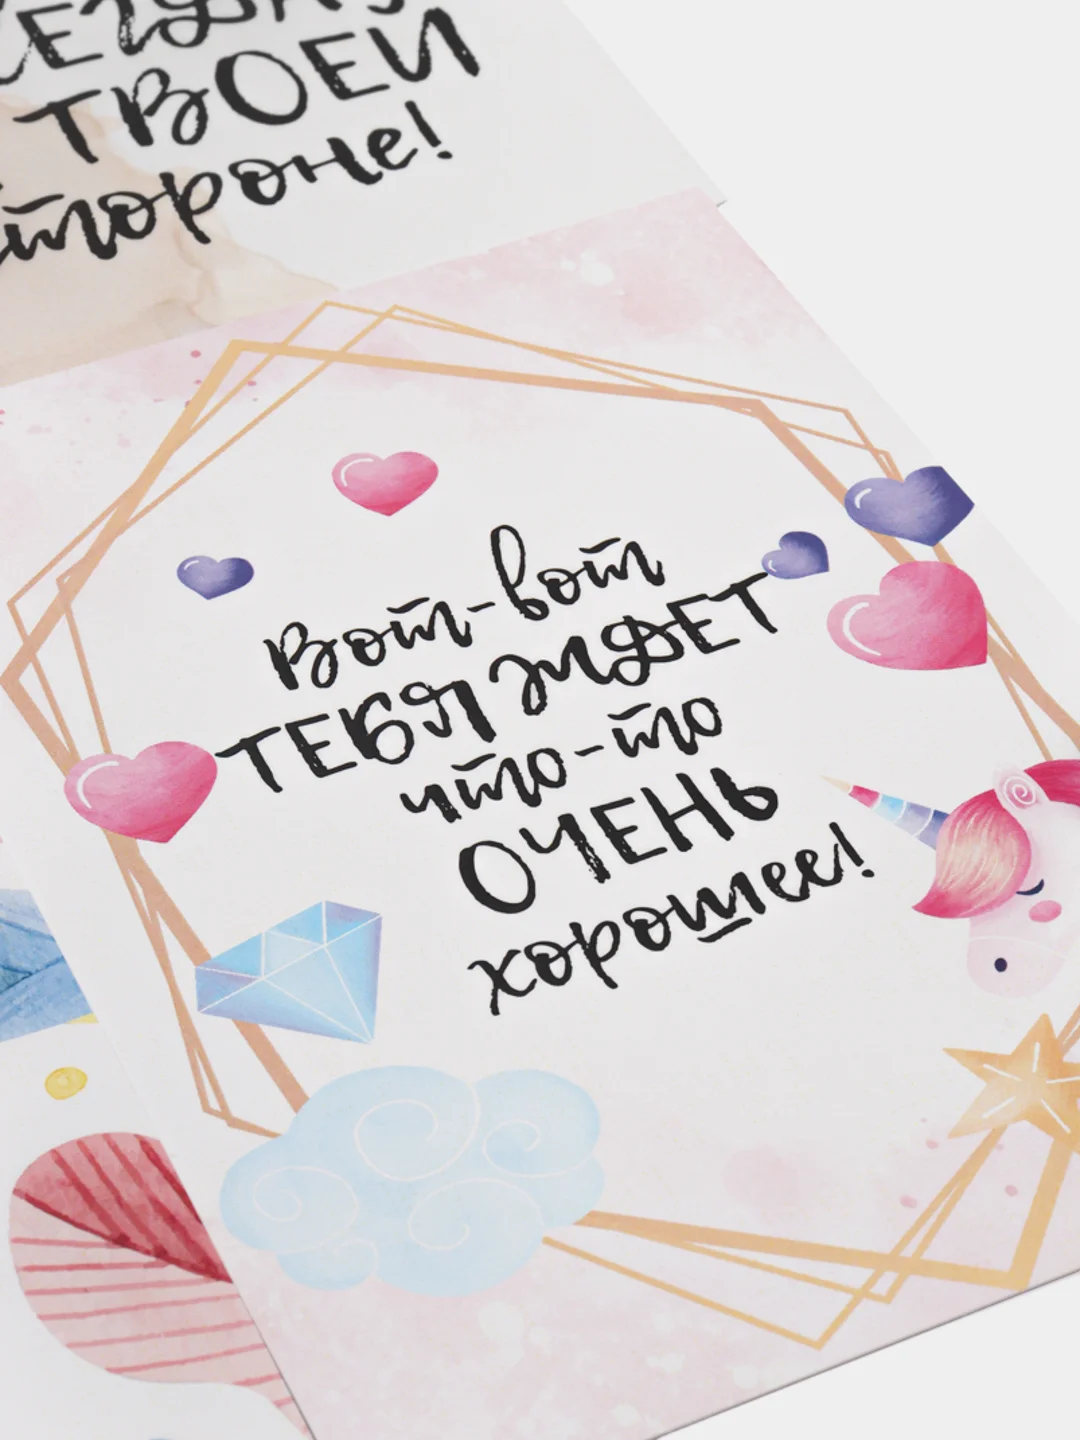 ТВОЕЙ
стороне!
Вот-вот
ТЕБЯ ЖДЕТ
что-то
ОЧЕНЬ
хорошее!